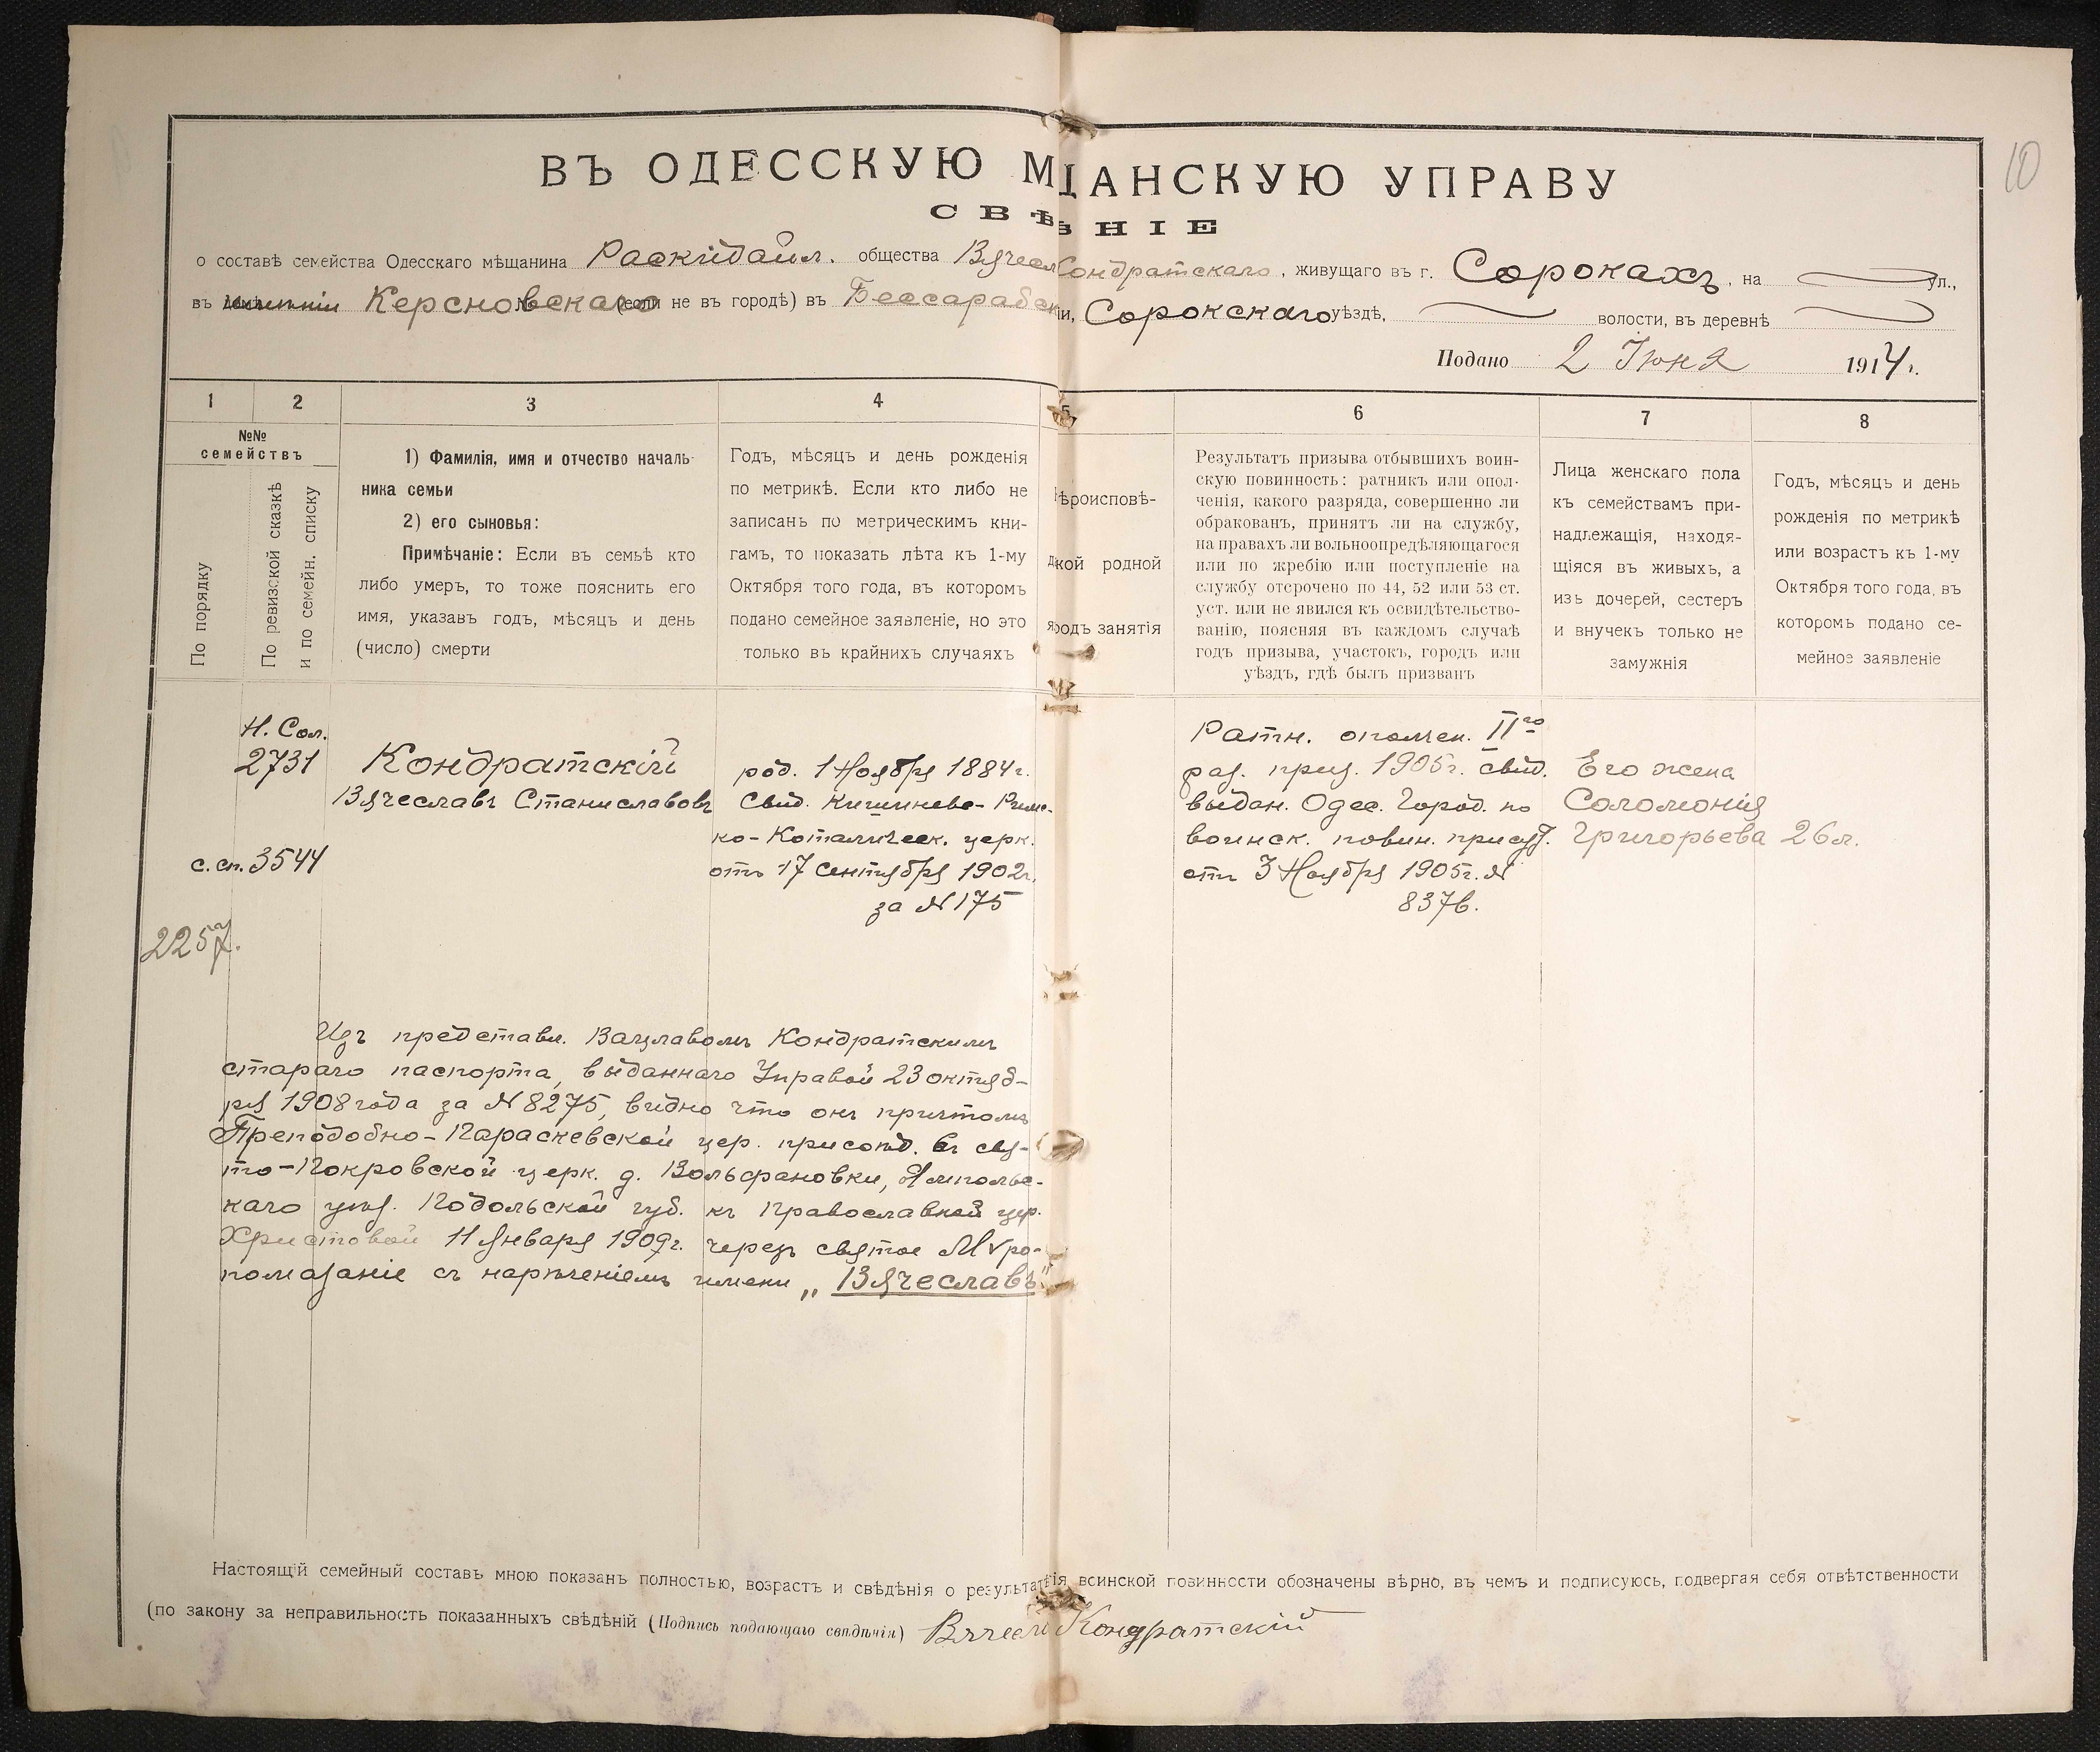 10
ВЪ ОДЕССКУЮ М ЩАНСКУЮ УПРАВУ
СВѢ НІЕ
о составѣ семейства Одесскаго мѣщанина Раскидайл. общества Вячесл Кондратскаго, живущаго въ г. Сорокахъ, на ул.,
въ имѣніи Керсновскаго (если не въ городѣ) въ Бессарабск іи, Сорокскаго уѣздѣ, волости, въ деревнѣ
Подано 2 Іюня 1914 г.
1 2 3 4 5 6 7 8
№№
семействъ
По порядку
По ревизской сказкѣ
и по семейн. списку
1) Фамилія, имя и отчество началь-
ника семьи
2) его сыновья:
Примѣчаніе: Если въ семьѣ кто
либо умеръ, то тоже пояснить его
имя, указавъ годъ, мѣсяцъ и день
(число) смерти
Годъ, мѣсяцъ и день рожденія
по метрикѣ. Если кто либо не
записанъ по метрическимъ кни-
гамъ, то показать лѣта къ 1-му
Октября того года, въ которомъ
подано семейное заявленіе, но это
только въ крайнихъ случаяхъ
ѣроисповѣ-
кой родной
родъ занятія
Результатъ призыва отбывшихъ воин-
скую повинность: ратникъ или опол-
ченія, какого разряда, совершенно ли
обракованъ, принятъ ли на службу,
на правахъ ли вольноопредѣляющагося
или по жребію или поступленіе на
службу отсрочено по 44, 52 или 53 ст.
уст. или не явился къ освидѣтельство-
ванію, поясняя въ каждомъ случаѣ
годъ призыва, участокъ, городъ или
уѣздъ, гдѣ былъ призванъ
Лица женскаго пола
къ семействамъ при-
надлежащія, находя-
щіяся въ живыхъ, а
изъ дочерей, сестеръ
и внучекъ только не
замужнія
Годъ, мѣсяцъ и день
рожденія по метрикѣ
или возрастъ къ 1-му
Октября того года, въ
которомъ подано се-
мейное заявленіе
Н. Сол.
2731
с. сп. 3544
2257.
Кондратскій
Вячеславъ Станиславовъ
род. 1 Ноября 1884 г.
Свид. Кишинево-Римс-
ко-Католическ. церк.
отъ 17 Сентября 1902г.
за № 175
Ратн. ополчен. IIго
раз. приз. 1905г. свид.
выдан. Одес. Город. по
воинск. повин. присут.
отъ 3 Ноября 1905г. №
8376.
Его жена
Соломонія
Григорьева 26 л.
Изъ представл. Вацлавомъ Кондратскимъ
стараго паспорта, выданнаго Управой 23 октяб-
ря 1908 года за № 8275, видно что онъ причтомъ
Преподобно-Параскевской цер. присоед. въ свя-
то-Покровской церк. д. Вольфрановки, Ямпольс-
каго уѣз. Подольской губ. къ Православной цер.
Христовой 11 Января 1909г. черезъ святое Мѵро-
помазаніе съ нареченіемъ имени „Вячеславъ"
Настоящій семейный составъ мною показанъ полностью, возрастъ и свѣдѣнія о результат ія всинской повинности обозначены вѣрно, въ чемъ и подписуюсь, подвергая себя отвѣтственности
(по закону за неправильность показанныхъ свѣдѣній (Подпись подающаго свѣдѣнія) Вячесл Кондратскій